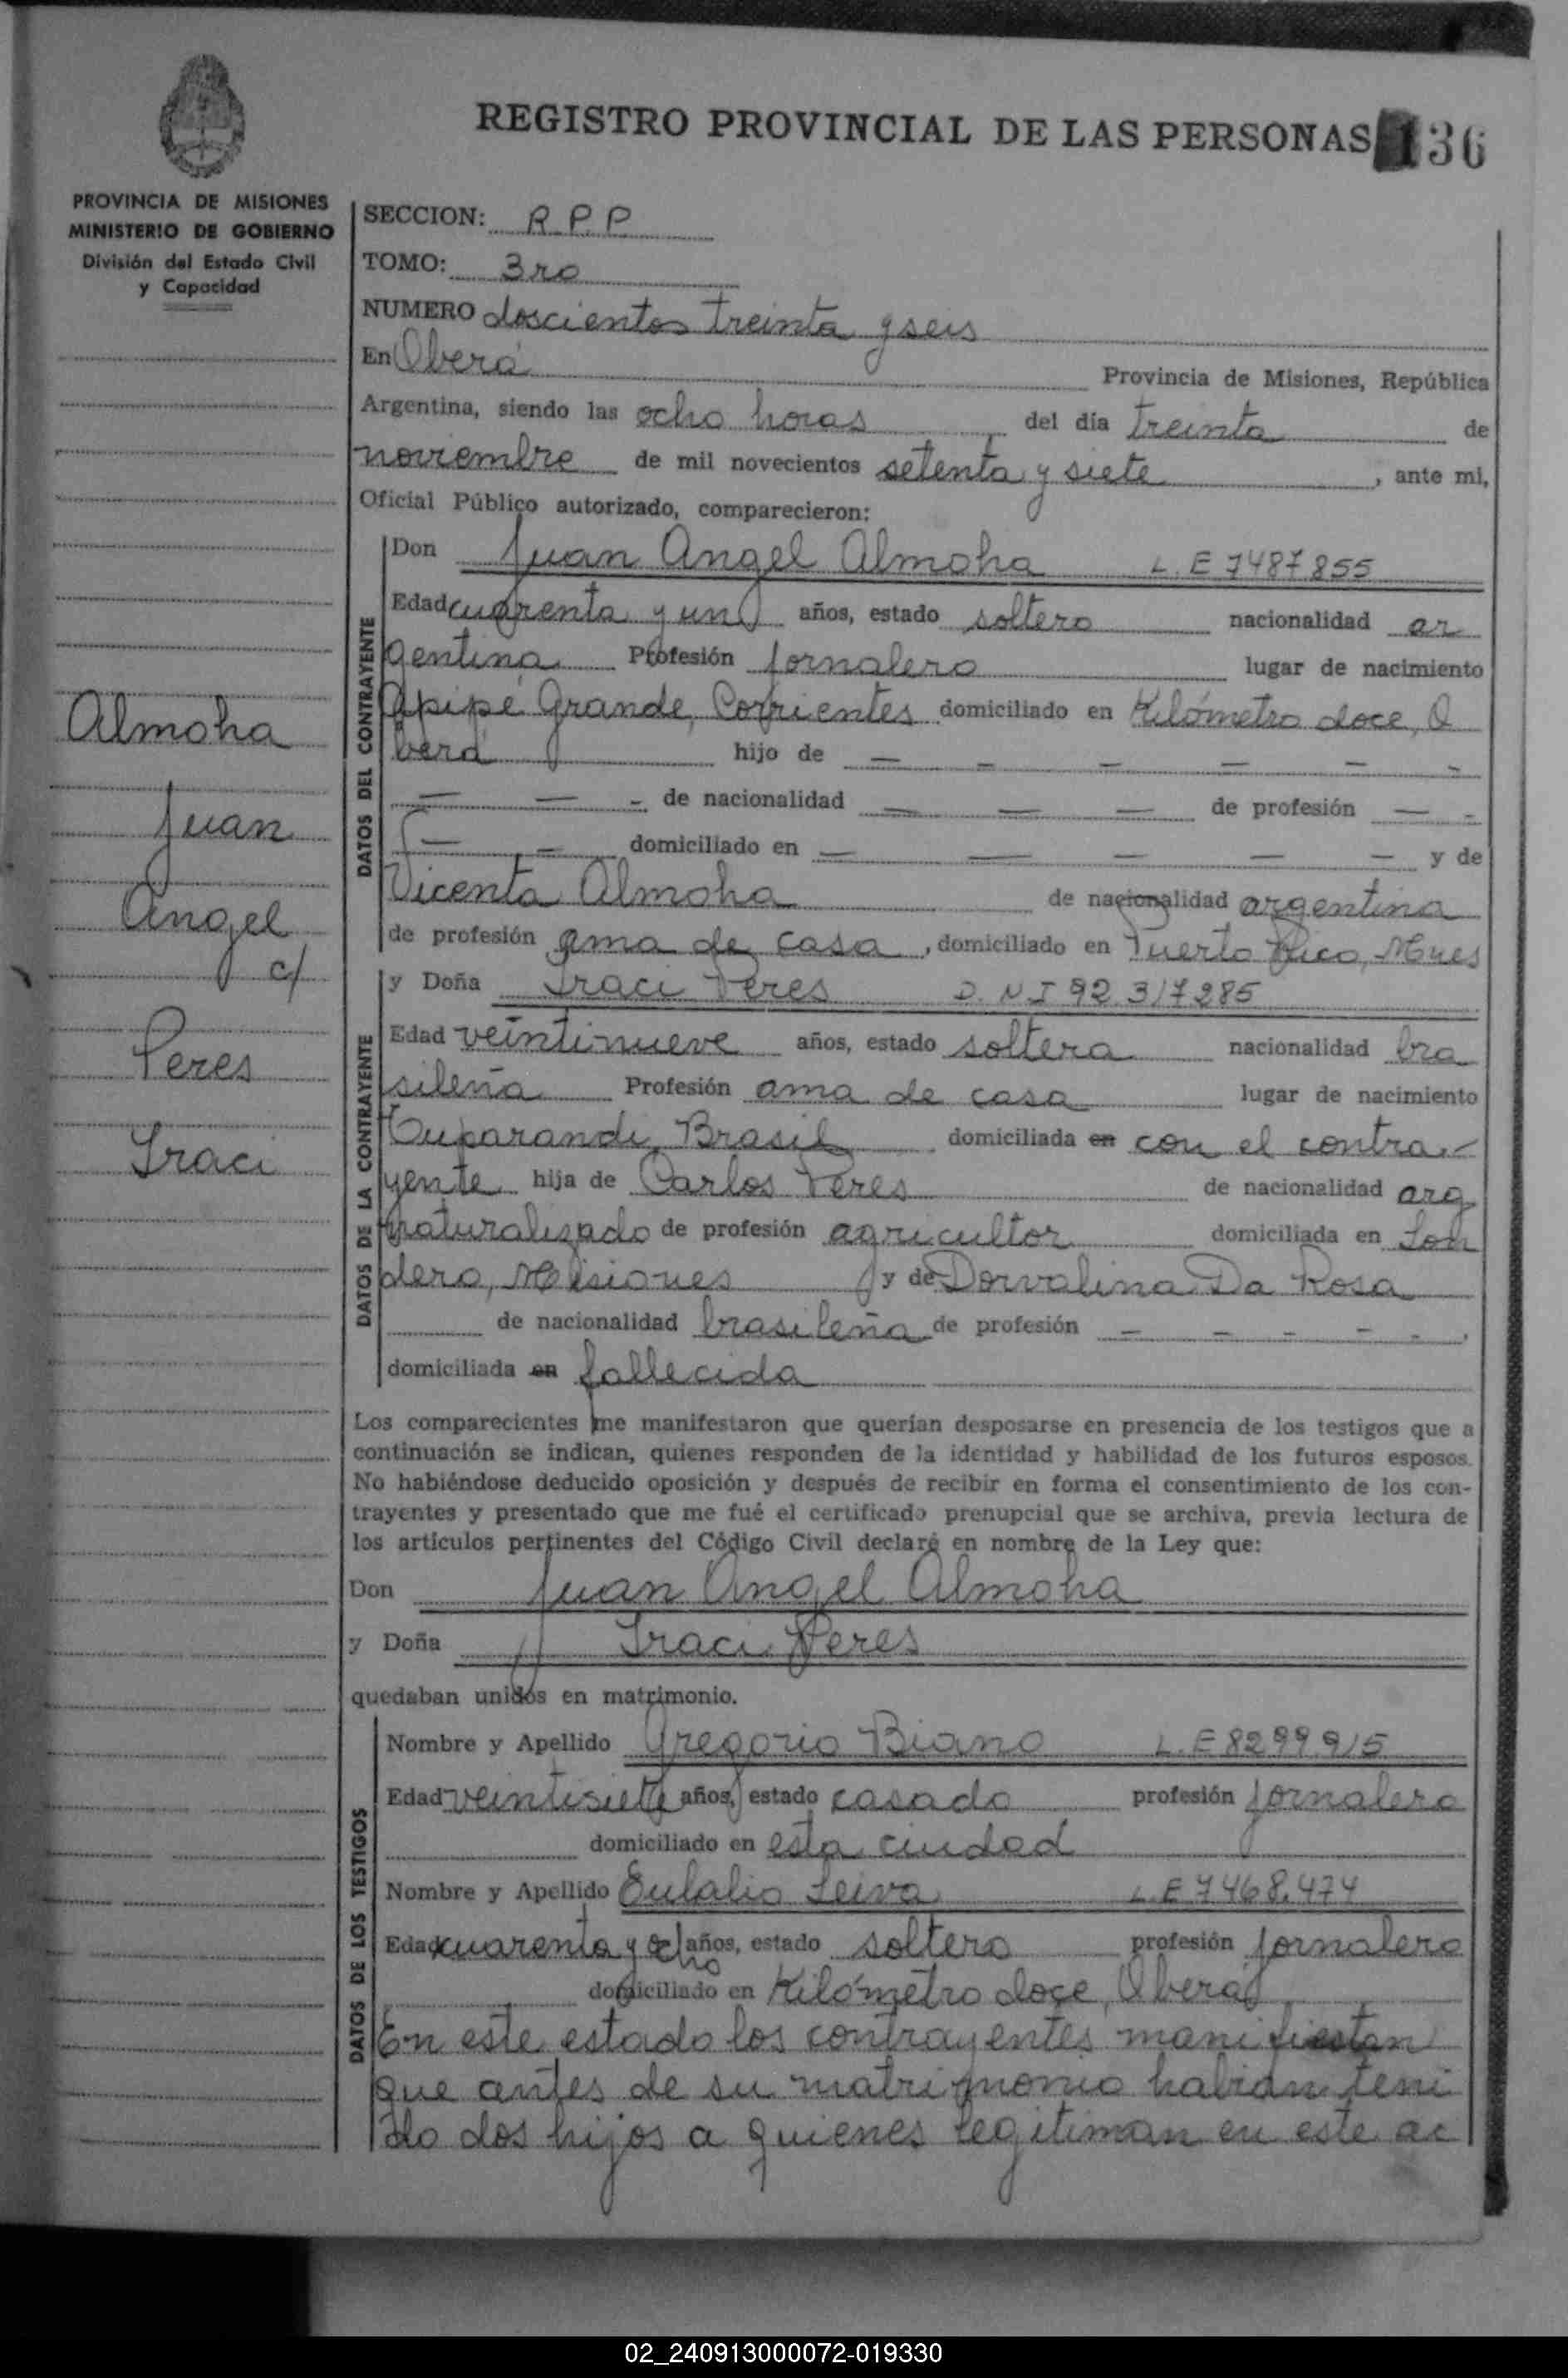 REGISTRO PROVINCIAL DE LAS PERSONAS 136
PROVINCIA DE MISIONES
MINISTERIO DE GOBIERNO
División del Estado Civil
y Capacidad
SECCION: R.P.P
TOMO: 3ro
NUMERO doscientos treinta y seis
En Oberá Provincia de Misiones, República
Argentina, siendo las ocho horas del día treinta de
noviembre de mil novecientos setenta y siete, ante mi,
Oficial Público autorizado, comparecieron:
DATOS DEL CONTRAYENTE
Don Juan Angel Almoha L.E 7487855
Edad cuarenta y un años, estado soltero nacionalidad ar
gentina Profesión jornalero lugar de nacimiento
Apipé Grande, Corrientes domiciliado en Kilómetro doce, O
berá hijo de — — — — — —
— — — de nacionalidad — — — de profesión — —
— — domiciliado en — — — — — y de
Vicenta Almoha de nacionalidad argentina
de profesión ama de casa, domiciliado en Puerto Rico, Mnes
Almoha
Juan
Angel
c/
Peres
Iraci
DATOS DE LA CONTRAYENTE
y Doña Iraci Peres D.N.I 92.317285
Edad veintinueve años, estado soltera nacionalidad bra
sileña Profesión ama de casa lugar de nacimiento
Tuparandi, Brasil domiciliada en con el contra-
yente hija de Carlos Peres de nacionalidad arg
naturalizado de profesión agricultor domiciliada en Son
dero, Misiones y de Dorvalina Da Rosa
de nacionalidad brasileña de profesión — — — — — ,
domiciliada en fallecida
Los comparecientes me manifestaron que querían desposarse en presencia de los testigos que a
continuación se indican, quienes responden de la identidad y habilidad de los futuros esposos.
No habiéndose deducido oposición y después de recibir en forma el consentimiento de los con-
trayentes y presentado que me fué el certificado prenupcial que se archiva, previa lectura de
los artículos pertinentes del Código Civil declaré en nombre de la Ley que:
Don Juan Angel Almoha
y Doña Iraci Peres
quedaban unidos en matrimonio.
DATOS DE LOS TESTIGOS
Nombre y Apellido Gregorio Biano L.E 8299915
Edad veintisiete años, estado casado profesión jornalero
domiciliado en esta ciudad
Nombre y Apellido Eulalio Leiva L.E 7468.474
Edad cuarenta y ocho años, estado soltero profesión jornalero
domiciliado en Kilómetro doce, Oberá
En este estado los contrayentes manifiestan
que antes de su matrimonio habían teni
do dos hijos a quienes legitiman en este ac
02_240913000072-019330